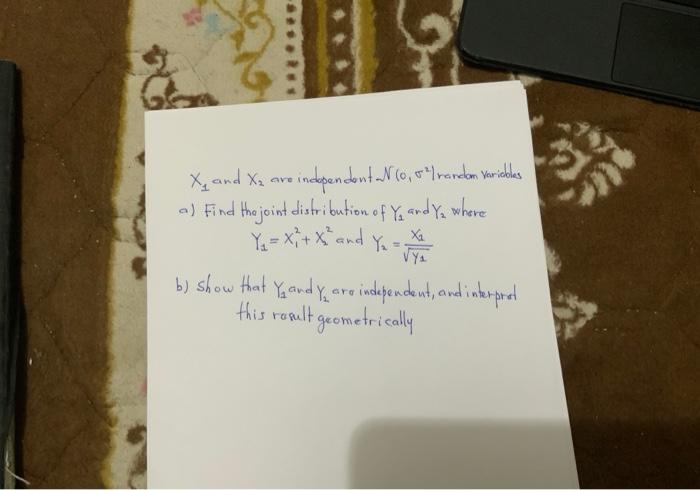 X₁ and X₂ are independent N(0, σ²) random variables
a) Find the joint distribution of Y₁ and Y₂ where
Y₁ = X₁² + X₂² and Y₂ = X₁/√Y₁
b) show that Y₁ and Y₂ are independent, and interpret
this result geometrically